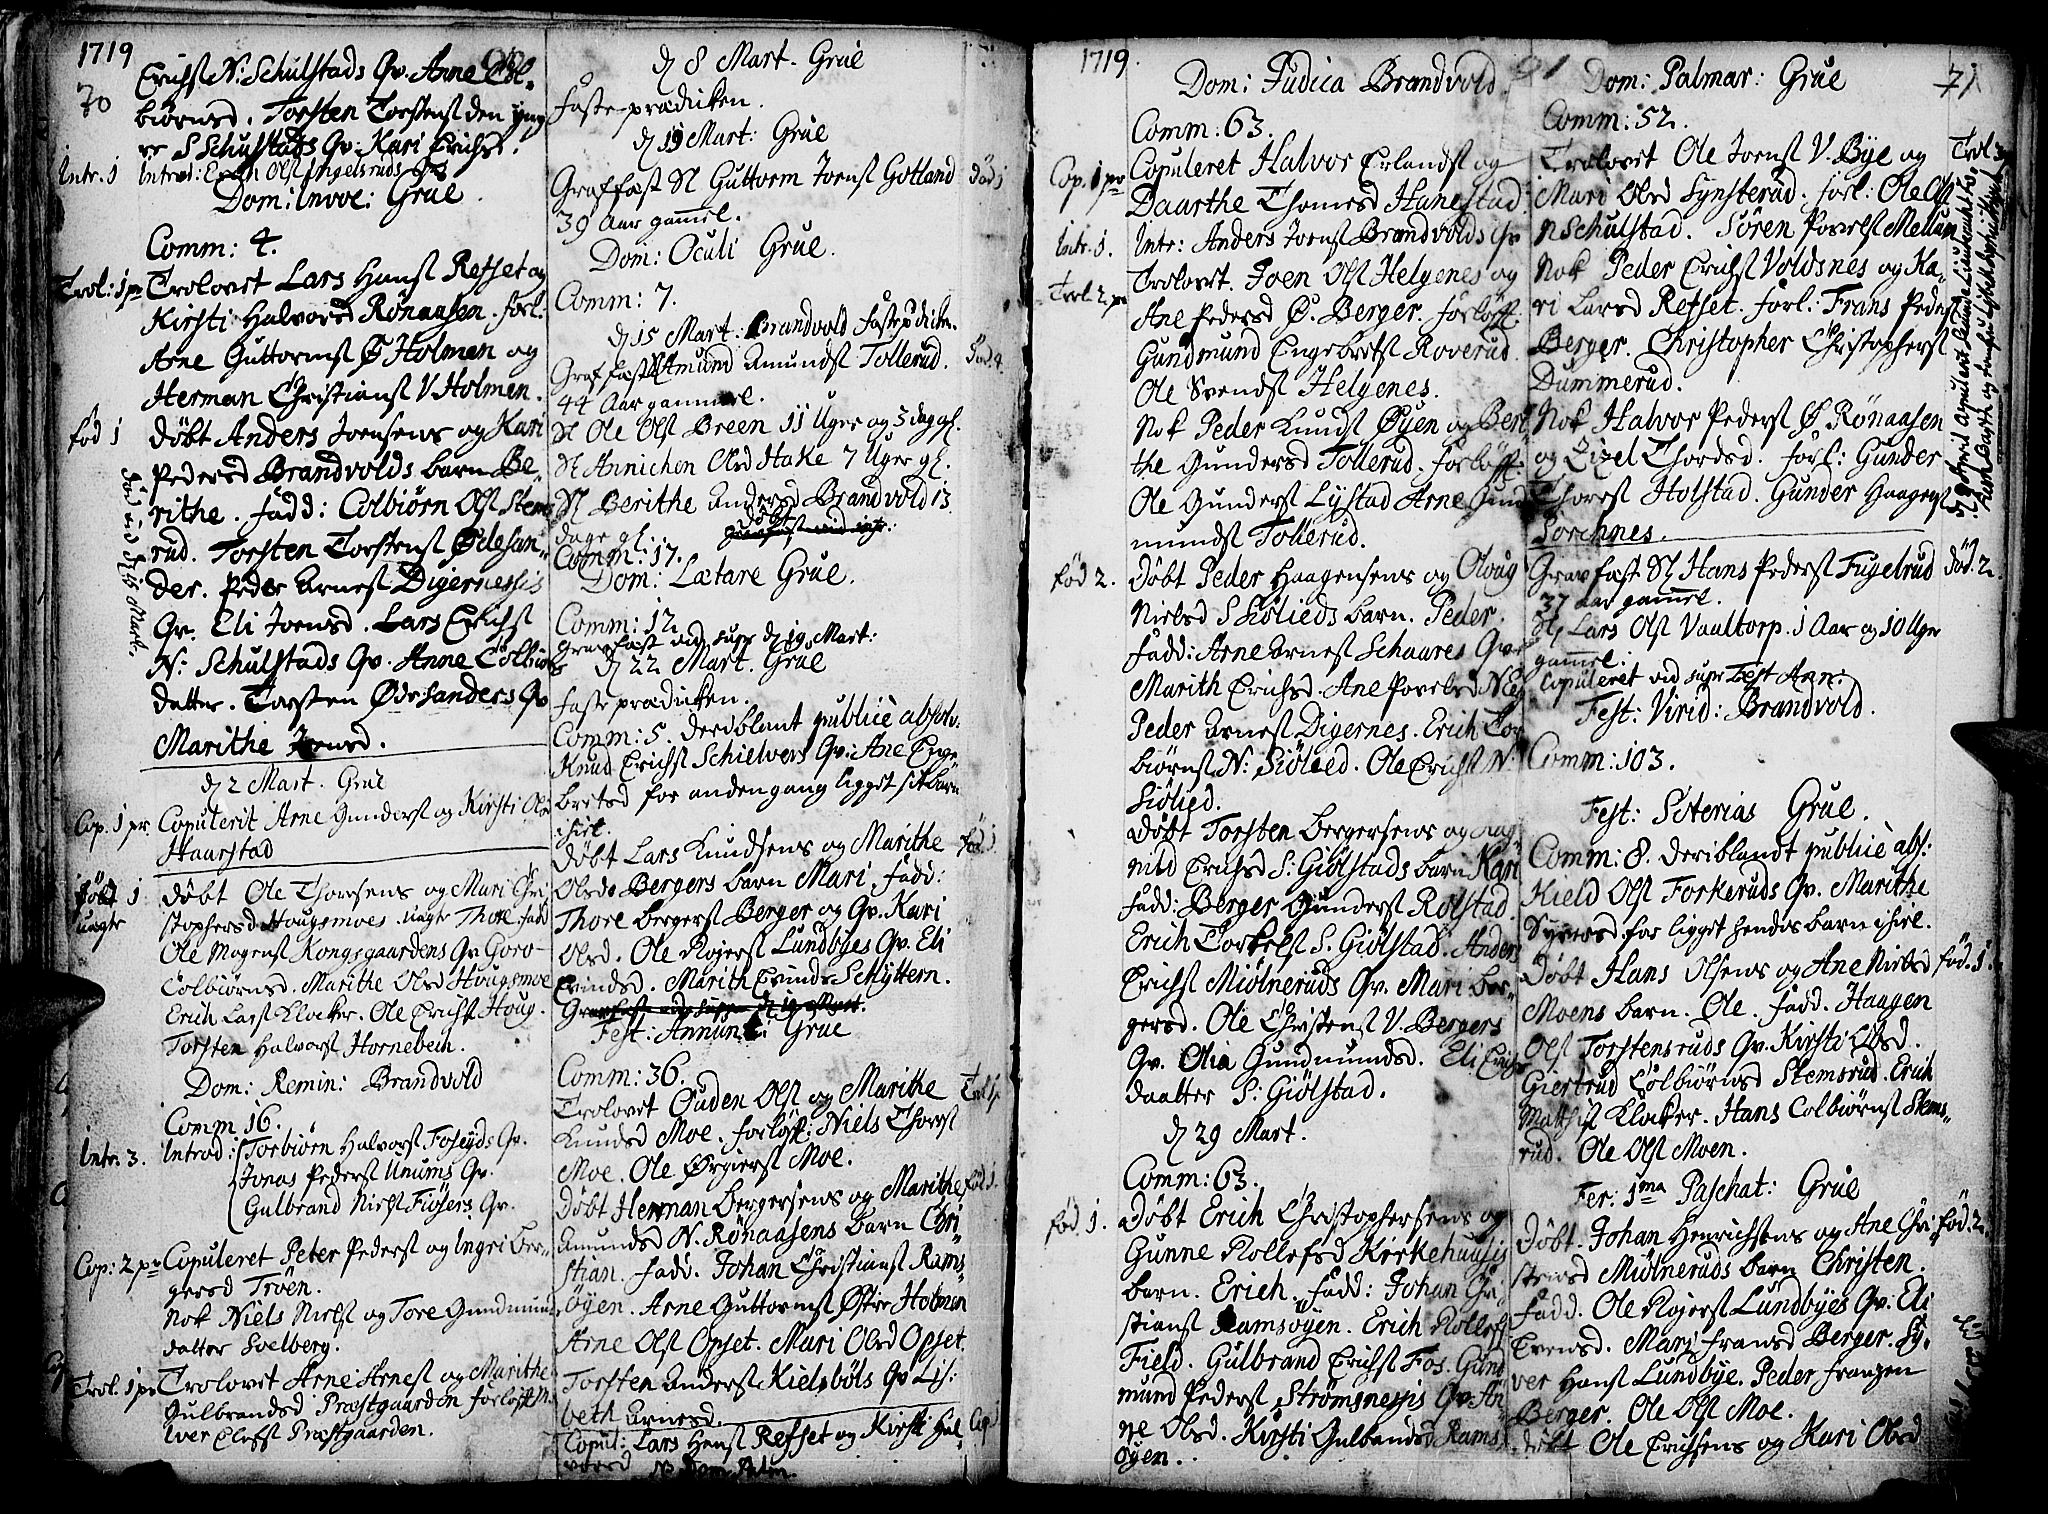 1719
70
Erichs N: Schulstads Qv. Arne Col-
biørnsd. Torsten Torstens den yng
re S Schulstads Qv. Kari Erichsd.
Intr. 1
Introd: Ols Ingelsruds Qv
Dom: Invoc: Grue.
Comm: 4.
Trol: 1 pr
Trolovet Lars Hans Refset og
Kirsti Halvorsd Rønaasen. forl:
Arne Guttorms Ø Holmen og
Herman Christians V. Holmen.
fød 1
Døbt Anders Joensens og Kari
Pedersd Brandvolds barn Be-
rithe. fadd: Colbiørn Ols Stems
rud. Torsten Torstens Ødesan-
der. Peder Arnes Digernessis
Qv. Eli Joensd. Lars Erichs
N: Schulstads Qv. Anne Colbiørns
datter. Torsten Ødesanders Qv
Marithe Joensd.
død
d 2 Mart. Grue
Cop. 1 pr.
Copulerit Arne Gunders og Kirsti Ols
Haarstad
Døbt 1
uegte
Døbt Ole Thoresens og Mari Chri
stophersd Hougsmoes uegte Thore. fadd
Ole Mogens Kongsgaardens Qv Goro
Colbiørnsd. Marithe Olsd Hougsmoe
Erich Lars Klocker. Ole Erichs Houg.
Torsten Halvors Hornebech.
Dom: Remin: Brandvold
Comm 16.
Intr. 3.
Introd: Torbiørn Halvors Foseyds Qv.
Jonas Peders Unums Qv.
Gulbrand Niels Fiøsers Qv.
Cop: 2 pr
Copuleret Peter Peders og Ingri Ber-
gersd Trøen.
Nok Niels Niels og Tore Gundmun
datter Svelberg.
Trol. 1 pr
Trolovet Arne Arnes og Marithe
Gulbrandsd Præstgaarden forløft
Iver Elefs Præstgaarden.
d 8 Mart. Grue
faste-prædicken.
d 19 Mart: Grue
Graffæst Sl Guttorm Joens Gotland
død 1
39 Aar gammel.
Dom: Oculi Grue.
Comm: 7.
d 15 Mart: Brandvold faste prdicken.
Graffæst Sl Amund Amunds Tollerud.
død. 4.
44 Aar gammel.
Sl Ole Ols Breen 11 Uger og 3 dag gl.
Sl Annichen Olsd Hake 7 Uger gl.
Sl Berithe Andersd Brandvold 13
dage gl:
Comm: 17.
Dom: Lætare Grue.
Comm: 12
Gravfæst vid supr d 19 Mart:
d 22 Mart. Grue
faste prædicken.
Comm: 5. deriblant publice absolv.
Knud Erichs Schielvers Qv: Ane Enge
bretsd for anden gang ligget sit barn
ihiel.
Døbt Lars Knudsens og Marithe
fød. 1.
Olsds Bergers barn Mari. fadd:
Thore Bergers Berger og Qv. Kari
Olsd. Ole Rojers Lundbyes Qv. Eli
Evindsd. Marith Evinds Schyttern.
Fest: Annunt: Grue
Comm: 36.
Trolovet Ouden Ols og Marithe
Knudsd Moe. forløft: Niels Thores
Moe. Ole Ørgiers Moe.
Døbt Herman Bergersens og Marithe
fød 1.
Amundsd N. Rønaasens barn Chri-
stian. fadd. Johan Christians Rams-
øyen. Arne Guttorms Østre Holmen
Arne Ols Opset. Mari Olsd Opset
Torsten Anders Kielsbøls Qv Lis-
beth Arnesd.
Copul: Lars Hans Refset og Kirsti Hal
Cop.
vorsd
1719.
Dom: Judica Brandvold.
Comm: 63.
Cop. 1 pr
Copuleret Halvor Erlands og
Daarthe Thomesd Hanestad
Intr. 1.
Intr: Anders Joens Brandvolds Qv
Trol. 2 pr
Trolovet. Joen Ols Helgenes og
Ane Pedersd Ø. Berger. forløft.
Gundmund Engebrets Roverud.
Ole Svends Helgenes.
Nok Peder Knuds Øyen og Bert
the Gundersd Tollerud. forløft:
Ole Gunders Lystad Arne Gund
munds Tollerud.
fød 2.
Døbt Peder Haagensens og Oloug
Nielsd S Siølieds barn. Peder.
fadd: Arne Arnes Schaares Qv:
Marith Erichsd. Ane Povelsd N
Peder Arnes Digernes. Erich Cor
biørns N: Siølied. Ole Erichs N:
Siølied.
Døbt Torsten Bergersens og Rag
nild Erichsd S: Giølstads barn Kari
fadd: Berger Gunders Rolstad.
Erich Torkels S. Giølstad. Anders
Erichs Miølneruds Qv. Mari Ber-
gersd. Ole Christens V. Bergers
Qv. Olia Gundmundsd. Eli Erichs
daatter S: Giølstad.
d 29 Mart.
Comm: 63.
fød 1.
Døbt Erich Christophersens og
Gunne Rollefsd Kirkehuusis
barn. Erich. fadd: Johan Chr.
stians Ramsøyen. Erich Rollefs
Field. Gulbrand Erichs Fos. Gund
mund Peders Strømsnessis Qv. An
ne Olsd. Kirsti Gulbrandsd Rams
øyen.
71
Dom: Palmar: Grue
Comm: 52.
Trol 3
Trolovet Ole Joens V. Bye og
Mari Olsd Synsterud. forl: Ole Ols
N Schulstad. Søren Povels Mellum
Nok Peder Erichs Voldsnes og Ka-
ri Larsd Refset. forl: Frans Peders
Berger. Christopher Christophers
Dummerud.
Nok Halvor Peders Ø Rønaasen
og Lizel Thordsd. forl: Gunder
Thores Holstad. Gunder Haagens
Sorchnes.
Gravfæst Sl Hans Peders Fugelrud
død. 2.
37 Aar gammel.
Sl Lars Ols Vaaltorp. 1 Aar og 10 Uger
gammel:
Copuleret vid supr Fest Ann:
Fest: Virid: Brandvold.
Comm: 103.
Fest: Soterias Grue.
Comm: 8. deriblandt publice abs:
Kield Ols Forkeruds Qv. Marithe
Syversd. for ligget hendes barn ihiel.
Døbt Hans Olsens og Ane Nielsd
fød. 1.
Moens barn. Ole. fadd. Haagen
Ols Torstensruds Qv. Kirsti Olsd.
Giertrud Colbiørnsd Stemsrud. Erich
Matthis Klocker. Hans Colbiørns Stems-
rud. Ole Ols Moen.
Fer: 1ma Paschat: Grue
Døbt. Johan Henrichsens og Ane Chri
fød. 2.
stensd Miølneruds barn Christen.
fadd. Ole Rojers Lundbyes Qv: Eli
Evensd. Mari fransd Berger. Sy-
ver Hans Lundbye. Peder franzen
Berger. Ole Ols Moe.
døbt Ole Erichsens og Kari Olsd